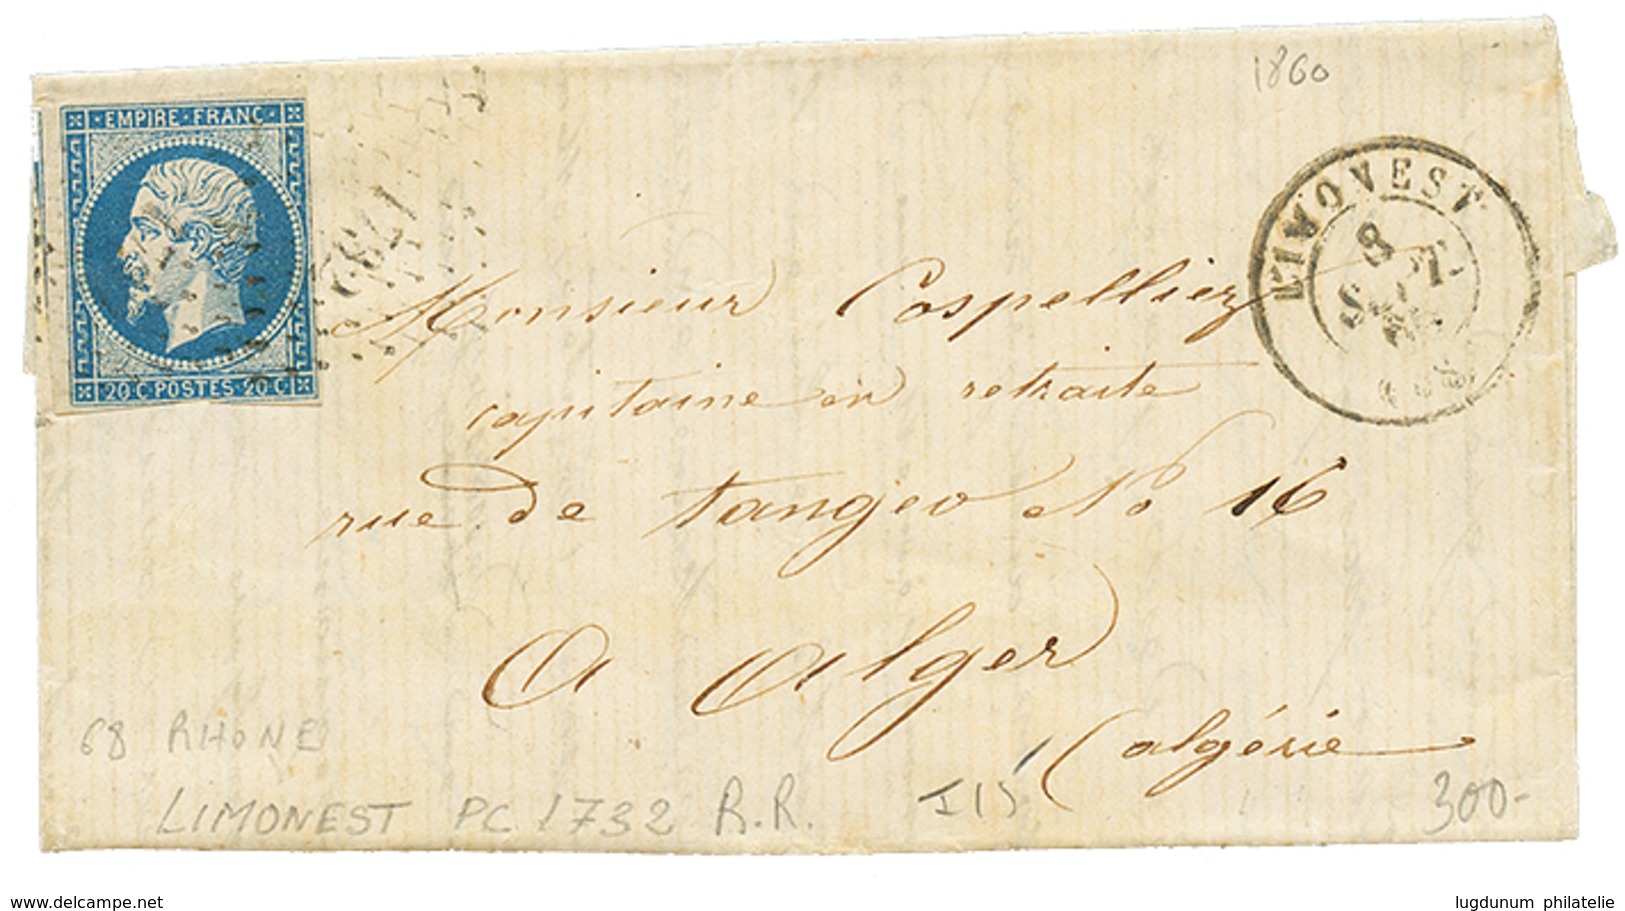 1860
EMPIRE · FRANC ·
1732
20 · C · POSTES · 20 · C ·
LIMONEST
8
SEPT.
(68)
Monsieur Cospelliez
capitaine en retraite
rue de tangeo No 16
A alger
(algérie
68 RHONE
LIMONEST PC 1732 R.R. I 15
300-
www.delcampe.net
lugdunum philatelie